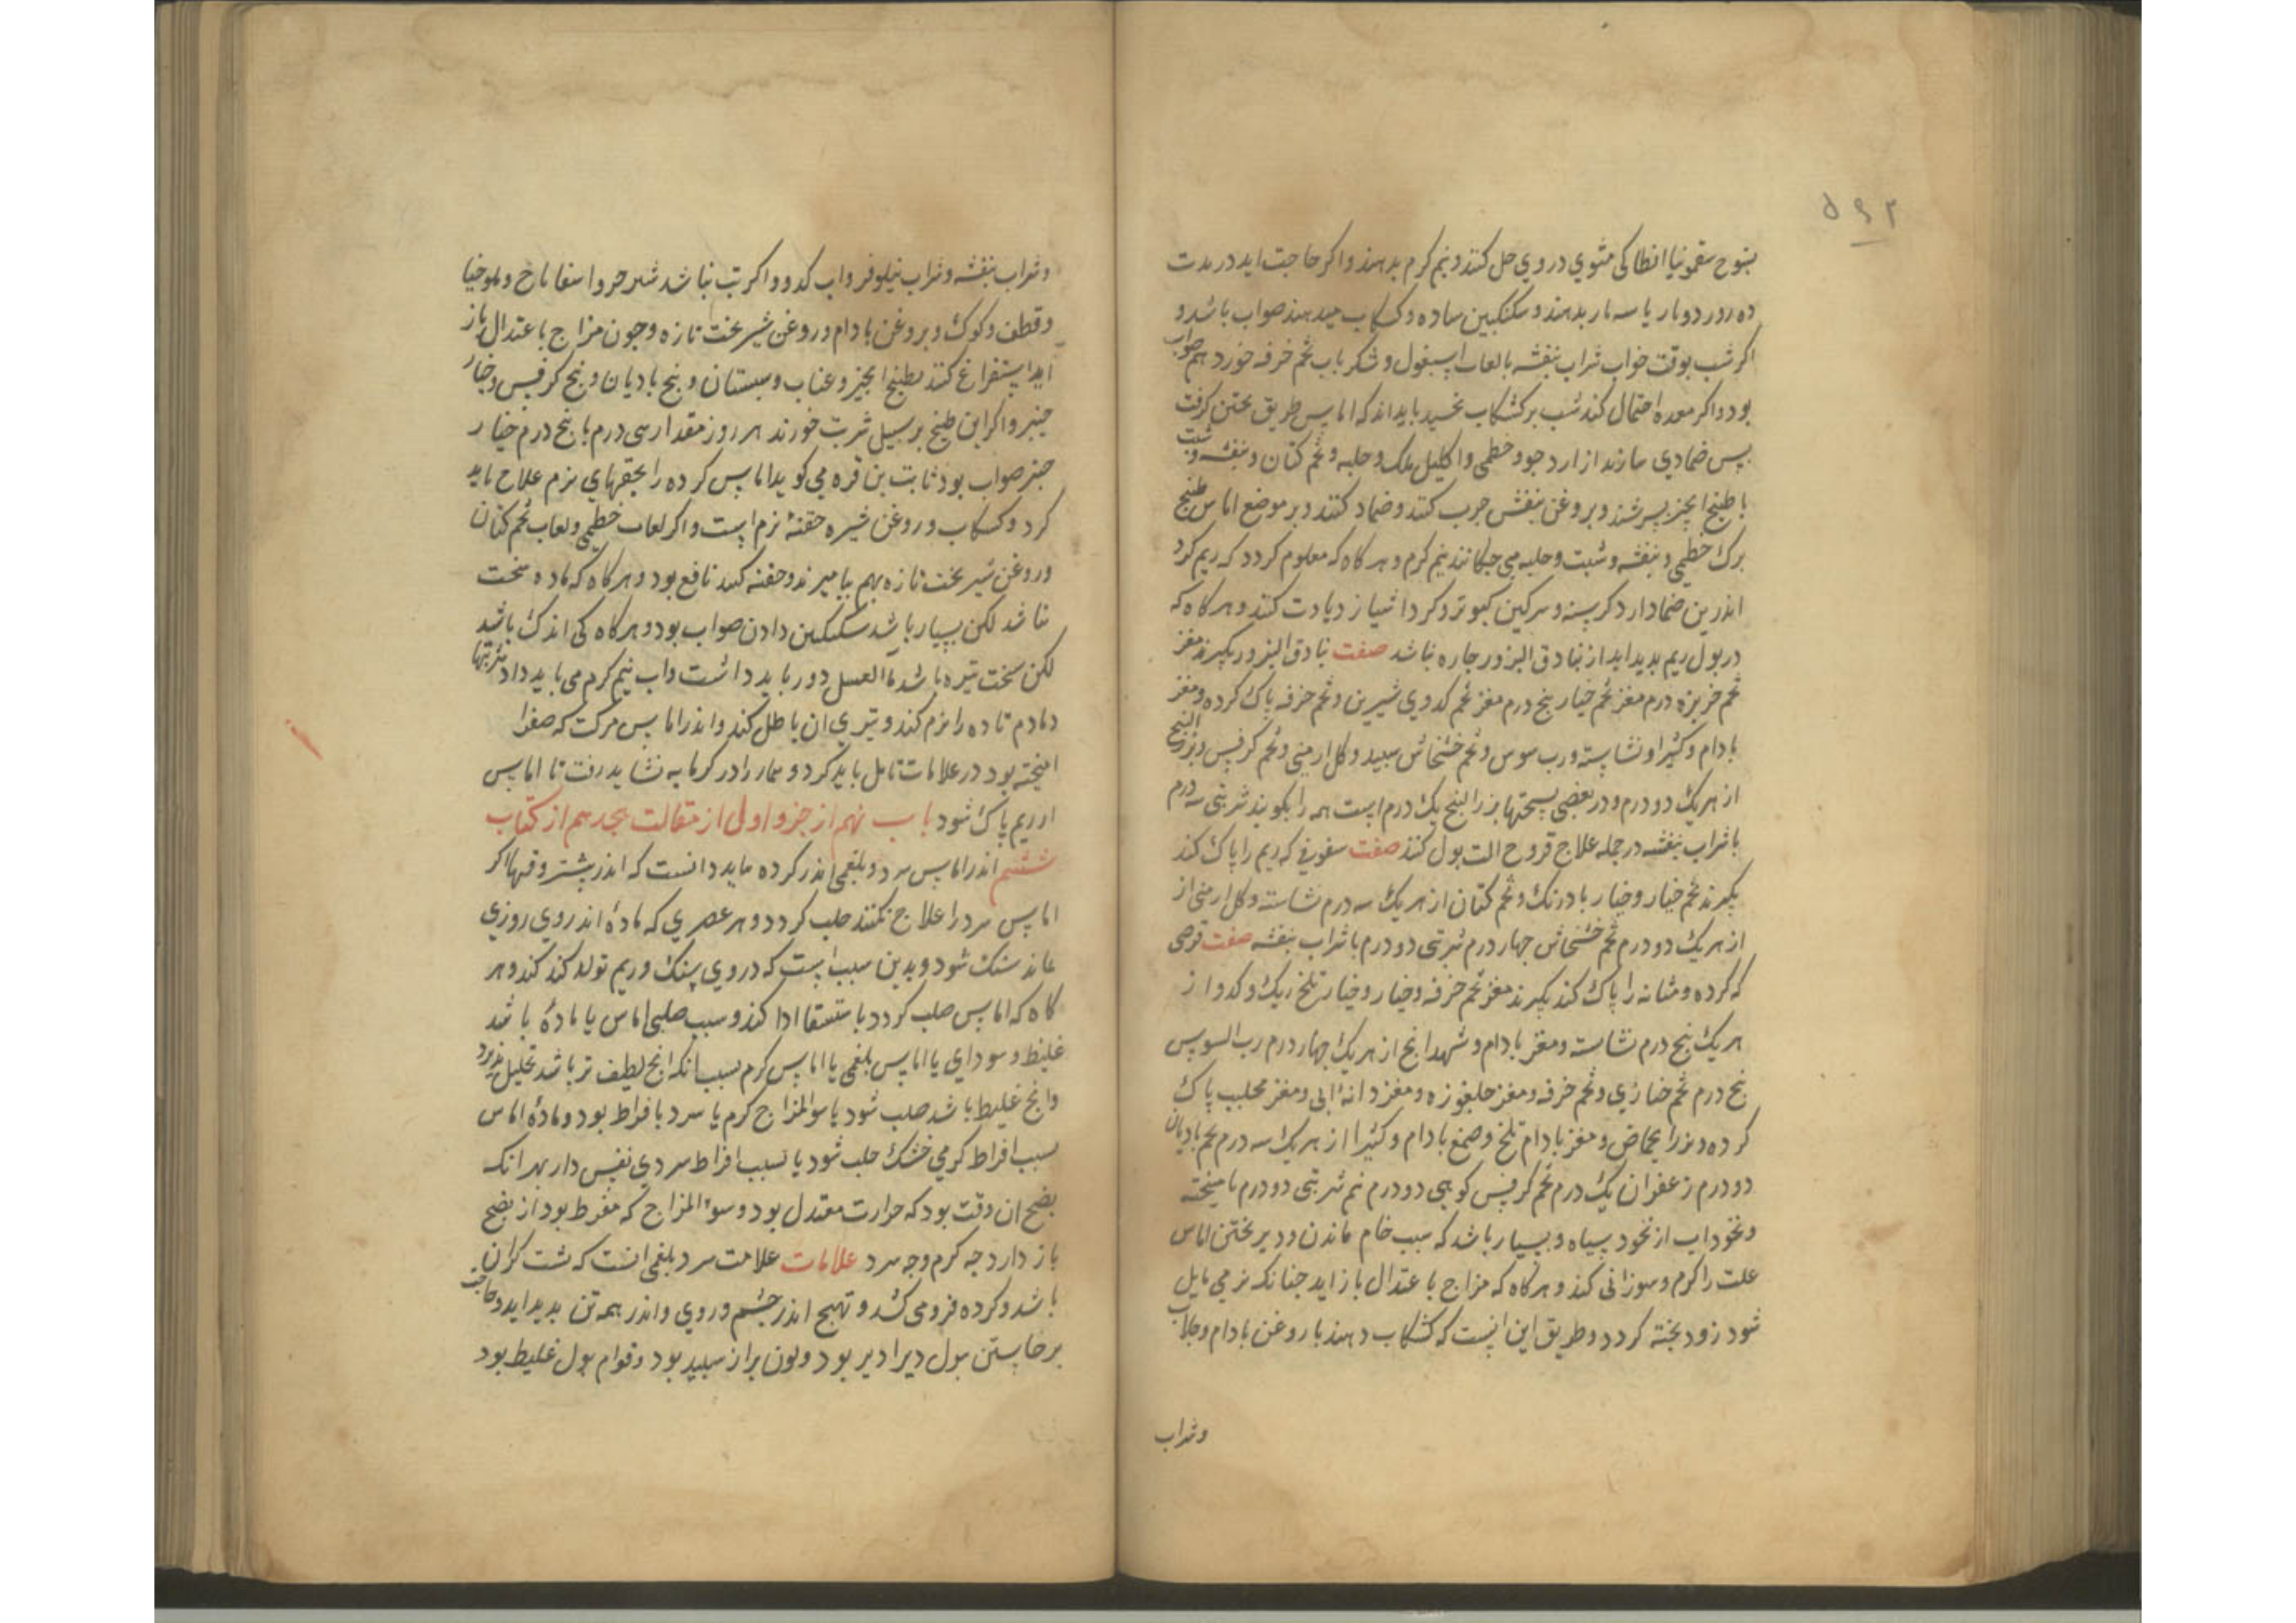 ۵۹۲
بنوح سقمونیا انطاکی مشوی در وی حل کنند و نیم کرم بدهند و اکر حاجت اید در مدت
ده روز دو بار یا سه بار بدهند و سکنکبین ساده و کشکاب میدهند صواب باشد و
اکر شب بوقت خواب شراب بنفشه با لعاب اسپغول و شکر با اب تخم خرفه خورد هم صواب
بود و اکر معده احتمال کند شب بر کشکاب نخسپد باید اند که اماس طریق پختن کرفت
پس ضمادی سازند از ارد جو و خطمی و اکلیل ملک و حلبه و تخم کتان و بنفشه و شبت
با طبیخ انجیر بسرشند و بروغن بنفش چرب کنند و ضماد کنند و بر موضع اماس طبیخ
برک خطمی و بنفشه و شبت و حلبه می جکانند نیم کرم و هر کاه که معلوم کردد که ریم کرد
اندرین ضماد ارد کرسنه و سرکین کبوتر و کرد اسیا زیادت کنند و هر کاه که
در بول ریم بدید اید از بنادق البزور جاره نباشد صفت بنادق البزور بکیرند مغز
تخم خربزه درم مغز تخم خیار پنج درم مغز تخم کدوی شیرین و تخم خرفه پاک کرده و مغز
بادام و کثیرا و نشاسته و رب سوس و تخم خشخاش سپید و کل ارمنی و تخم کرفس و بزر البنج
از هر یک دو درم و در بعضی نسختها بزر البنج یک درم است همه را بکوبند شربتی سه درم
با شراب بنفشه در جمله علاج قروح الت بول کنند صفت سفوفی که ریم را پاک کند
بکیرند تخم خیار و خیار بادرنک و تخم کتان از هر یک سه درم نشاسته و کل ارمنی از
از هر یک دو درم تخم خشخاش جهار درم شربتی دو درم با شراب بنفشه صفت قرصی
که کرده و مثانه را پاک کند بکیرند مغز تخم خرفه و خیار و خیار تلخ زیک و کدو از
هر یک پنج درم نشاسته و مغز بادام و شهدانج از هر یک جهار درم رب السوس
پنج درم تخم خبازی و تخم خرفه و مغز جلغوزه و مغز دانهٔ ابی و مغز محلب پاک
کرده و بزر الحماض و مغز بادام تلخ و صمغ بادام و کثیرا از هر یک سه درم تخم بادیان
دو درم زعفران یک درم تخم کرفس کوهی دو درم نیم شربتی دو درم با میبخته
و نخوداب از نخود سیاه و بسیار باشد که سبب خام ماندن و دیر پختن اماس
علت را کرم و سوزانی کند و هر کاه که مزاج با عتدال باز اید جنانکه نرمی مایل
شود زود پخته کردد و طریق این انست که کشکاب دهند با روغن بادام و جلاب
و شراب
و شراب بنفشه و شراب نیلوفر و اب کدو و اکر تب نباشد و اسفاناخ و ملوخیا
و قطف و کوک و بروغن بادام و روغن شیر بخت تازه و جون مزاج با عتدال باز
اید استفراغ کنند بطبیخ انجیر و عناب و سبستان و بیخ بادیان و بیخ کرفس و خیار
جنبر و اکر این طبیخ بر سبیل شربت خورند هر روز مقدار سی درم با پنج درم خیار
جنبر صواب بود ثابت بن قره می کوید اماس کرده را بحقنهای نرم علاج باید
کرد و کشکاب و روغن شیره حقنهٔ نرم است و اکر لعاب خطمی و لعاب تخم کتان
و روغن شیر بخت تازه بهم بیامیزند و حقنه کنند نافع بود و هر کاه که ماده سخت
نباشد لکن بسیار باشد سکنکبین دادن صواب بود و هر کاه کی اندک باشد
لکن سخت تیره باشد ماالعسل دور باید داشت و اب نیم کرم می باید داد شربتها
دمادم تا ده را نرم کند و تیزی ان باطل کند و اندر اماس مرکب که صفرا
امیخته بود در علامات تامل باید کرد و بیمار را در کرمابه نشاید رفت تا اماس
از ریم پاک شود باب نهم از جزو اول از مقالت هجدهم از کتاب
ششم اندر اماس سرد و بلغمی اندر کرده باید دانست که اندر بیشتر وقتها اکر
اماس سرد را علاج نکنند صلب کردد و هر عصری که مادهٔ اندر وی روزی
بماند سنک شود و بدین سبب است که در وی سنک و ریم تولد کند و هر
کاه که اماس صلب کردد با ستسقا ادا کند و سبب صلبی اماس یا مادهٔ باشد
غلیظ و سودای یا اماس بلغمی یا اماس کرم بسبب انکه انج لطیف تر باشد تحلیل پذیرد
و انج غلیظ باشد صلب شود یا سوالمزاج کرم یا سرد با فراط بود و مادهٔ اماس
بسبب افراط کرمی خشک صلب شود یا بسبب افراط سردی بهر انک
نضج ان وقت بود که حرارت معتدل بود و سوء المزاج که مفرط بود از نضج
باز دارد جه کرم و جه سرد علامات علامت سرد بلغمی انست که پشت کران
باشد و کرده فرو می کشد و تهبج اندر جشم و روی و اندر همه تن بدید اید و حاجت
برخاستن بول دیرا دیر بود و لون براز سپید بود و قوام بول غلیظ بود